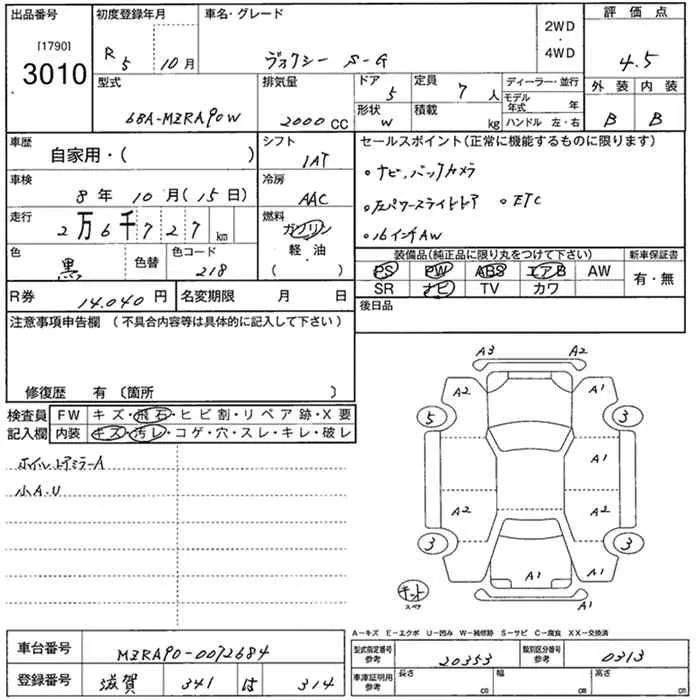 出品番号
[1790]
3010
初度登録年月
R5 10月
車名・グレード
ヴォクシー S-G
2WD
・
4WD
評価点
4.5
型式
6BA-MZRA90W
排気量
2000CC
ドア
5
定員
7人
ディーラー・並行
モデル年式 年
ハンドル 左・右
形状
W
積載
kg
外装
内装
B
B
車歴
自家用・( )
シフト
IAT
セールスポイント(正常に機能するものに限ります)
・ナビ、バックカメラ
・左パワースライドドア ・ETC
・16インチAW
車検
8年 10月(15日)
冷房
AAC
走行
2万6千727km
燃料
ガソリン
軽・油
( )
色
黒
色替
色コード
218
装備品(純正品に限り丸をつけて下さい)
新車保証書
PS PW ABS エアB AW
SR ナビ TV カワ
有・無
R券
14,040円
名変期限 月 日
後日品
注意事項申告欄(不具合内容等は具体的に記入して下さい)
修復歴 有〔箇所 〕
検査員
記入欄
FW キズ・飛石・ヒビ割・リペア跡・X要
内装 キズ・汚レ・コゲ・穴・スレ・キレ・破レ
ホイル、ドアミラーA
小A.U
A3 A2
A2 A1
5 3
A1
A2 A1
3 3
A1 A1
キット
スペア
A-キズ E-エクボ U-凹み W-補修跡 S-サビ C-腐食 XX-交換済
車台番号
MZRA90-0072684
登録番号
滋賀 341 は 314
型式指定番号
参考
20353
類別区分番号
参考
0313
車庫証明用
参考
長さ cm
幅 cm
高さ cm